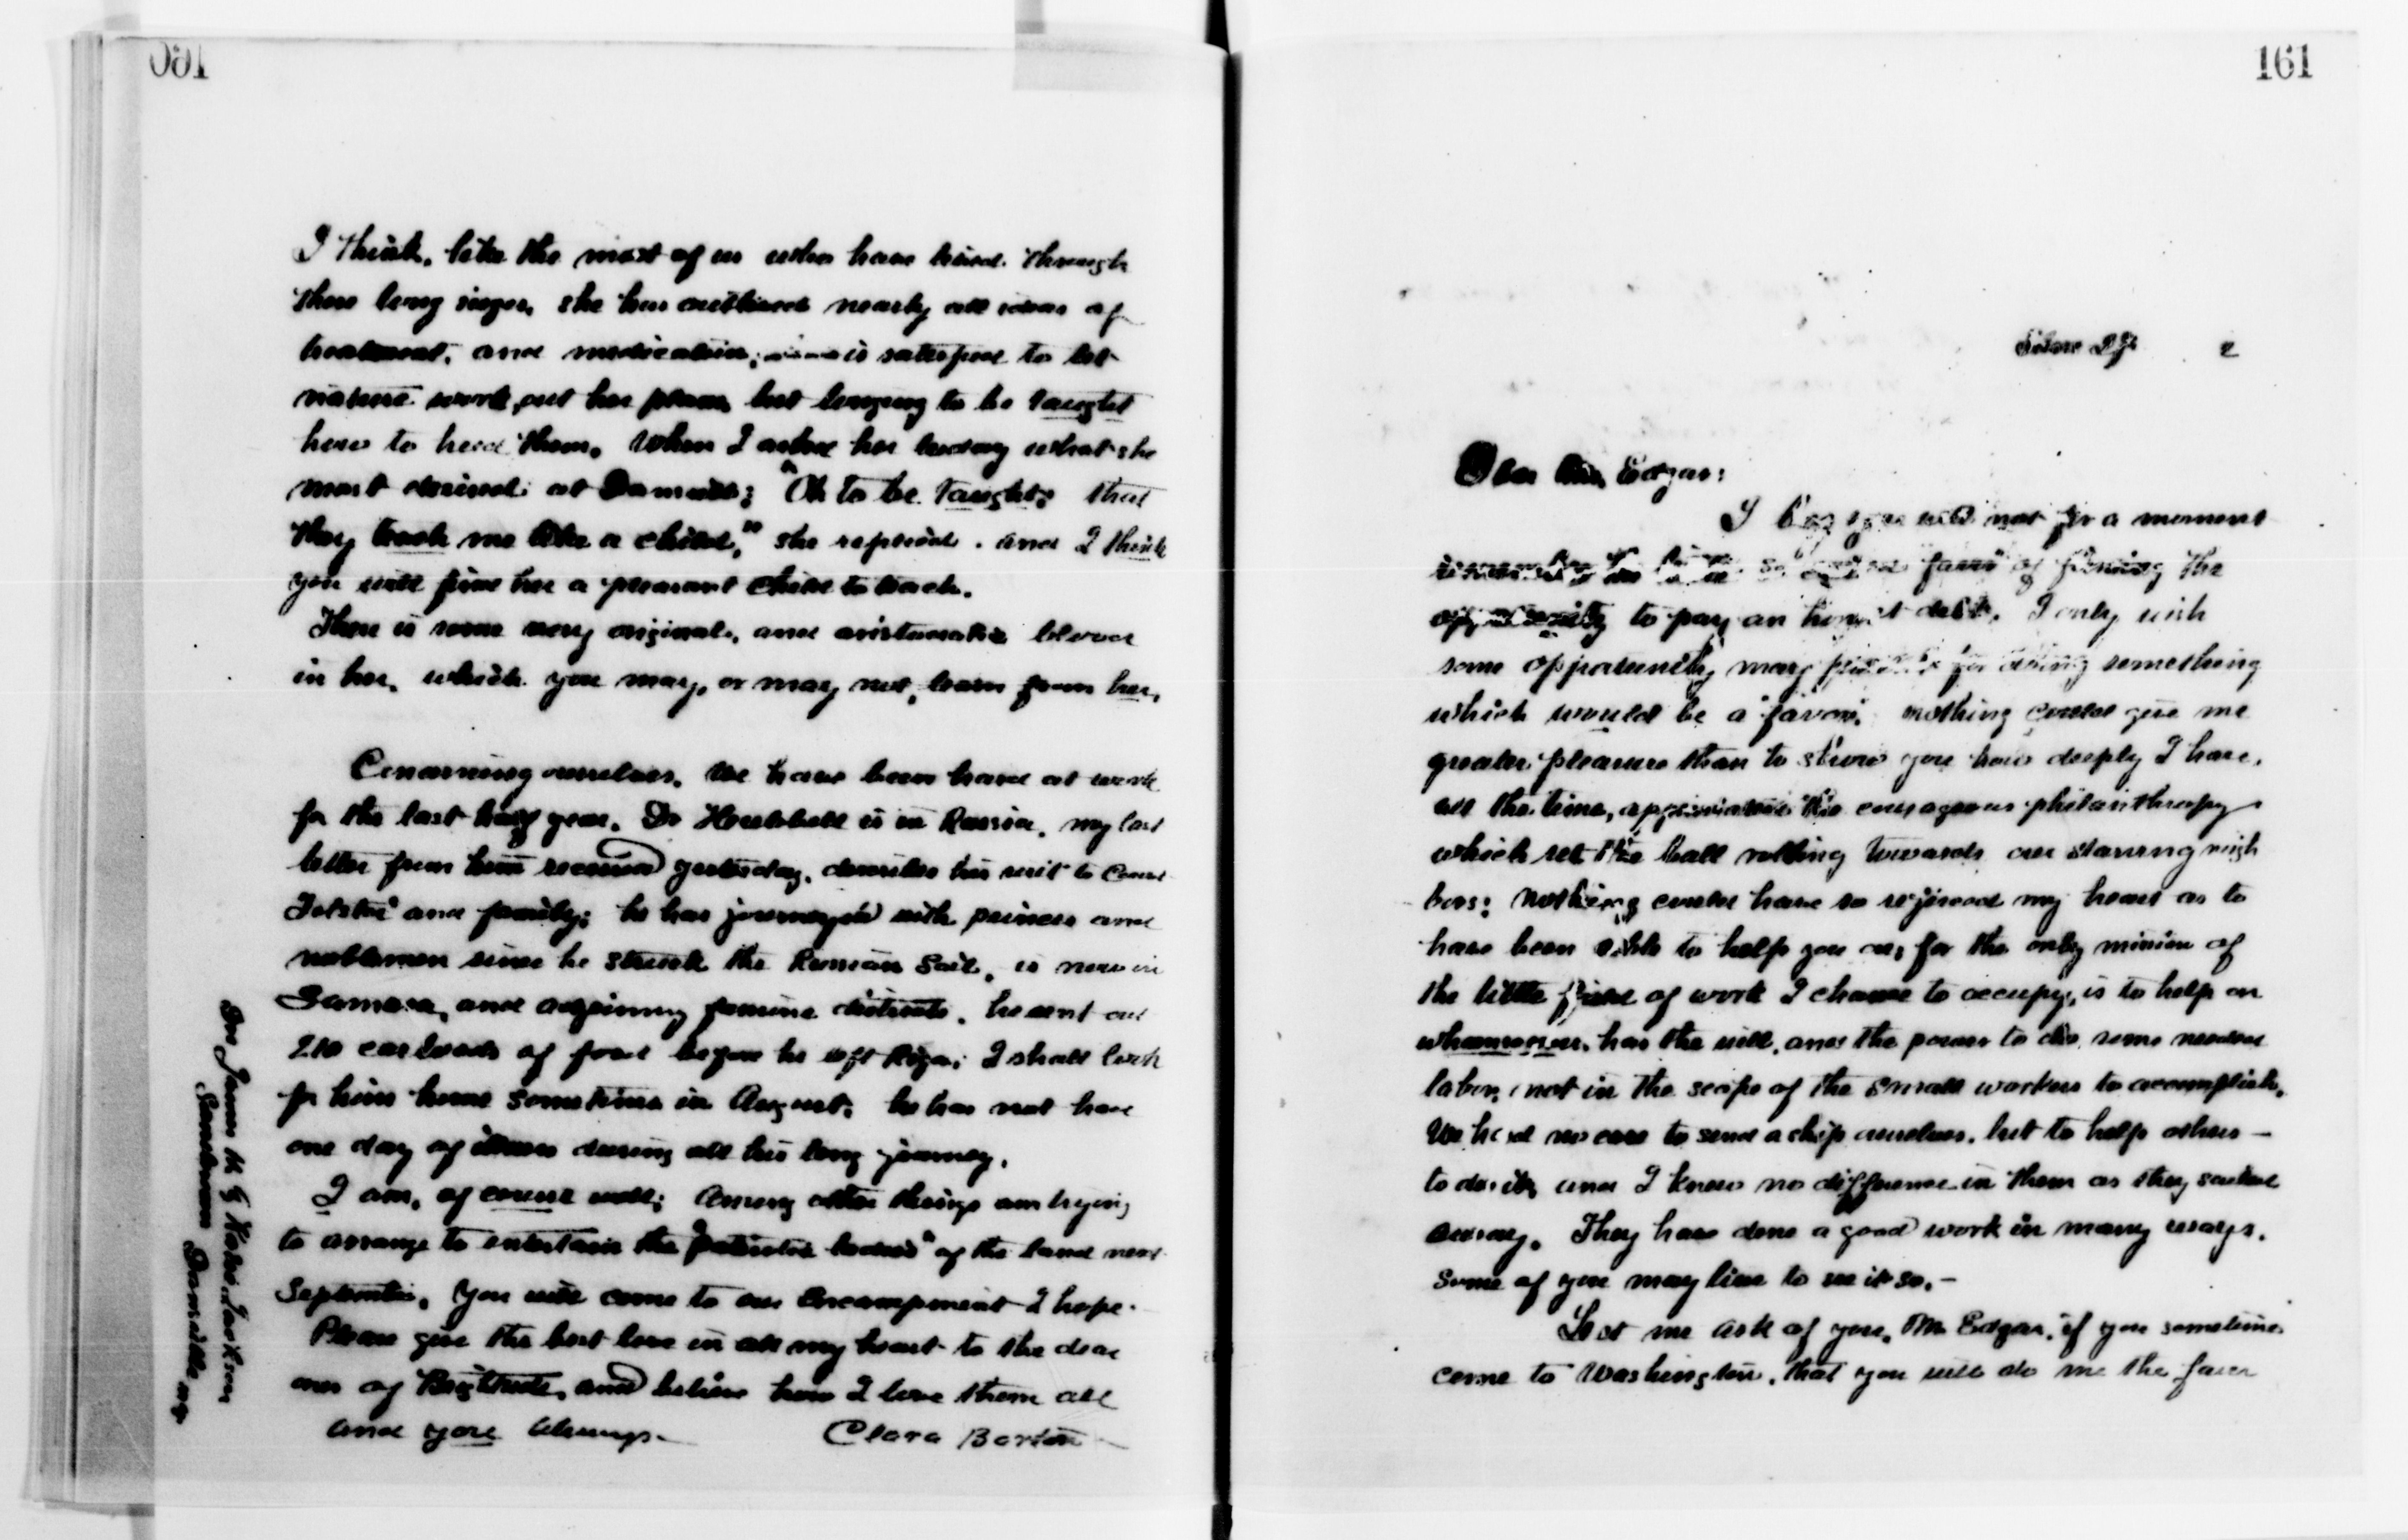 160
I think, like the most of us who have lived through
these long sieges, she has outlived nearly all ideas of
treatment, and medication, is satisfied to let
nature work out her plans, but longing to be taught
how to heed them. When I asked her today what she
most desired at Dansville; "Oh to be taught; that
they teach me like a child," she replied. and I think
you will find her a pleasant child to teach.
There is some very original, and aristocratic blood
in her, which you may, or may not, learn from her.
Concerning ourselves, We have been hard at work
for the last half year. Dr Hubbell is in Russia, my last
letter from him received yesterday, describes his visit to Count
Tolstoi and family; he has journeyed with princes and
noblemen since he struck the Russian Soil, is now in
Samara, and adjoining famine districts. he sent out
210 carloads of food before he left Riga; I shall look
for him home sometime in August, he has not had
one day of illness during all his long journey.
I am, of course well; Among other things am trying
to arrange to entertain the "patriotic bodies" of the land next
September. You will come to our Encampment I hope.
Please give the best love in all my heart to the dear
ones of Brightside, and believe how I love them all
and you always.
Clara Barton
Dr James H & Katie Jackson
Sanatorium Dansville NY
161
2
Dear Mr. Edgar:
I beg you will not for a moment
favor of the
opportunity to pay an honest debt. I only wish
some opportunity may for doing something
which would be a "favor," nothing could give me
greater pleasure than to show you how deeply I have,
all the time, appreciated the courageous philanthropy
which set the ball rolling towards our starving neigh
bors; Nothing could have so rejoiced my heart as to
have been able to help you on; for the only mission of
the little field of work I chance to occupy, is to help on
whomsoever, has the will, and the power to do, some needed
labor, not in the scope of the small workers to accomplish.
We had no care to send a ship ourselves, but to help others –
to do it, and I knew no difference in them as they sailed
away. They have done a good work in many ways.
Some of you may live to see it so. –
Let me ask of you, Mr Edgar, if you sometime
come to Washington, that you will do me the favor